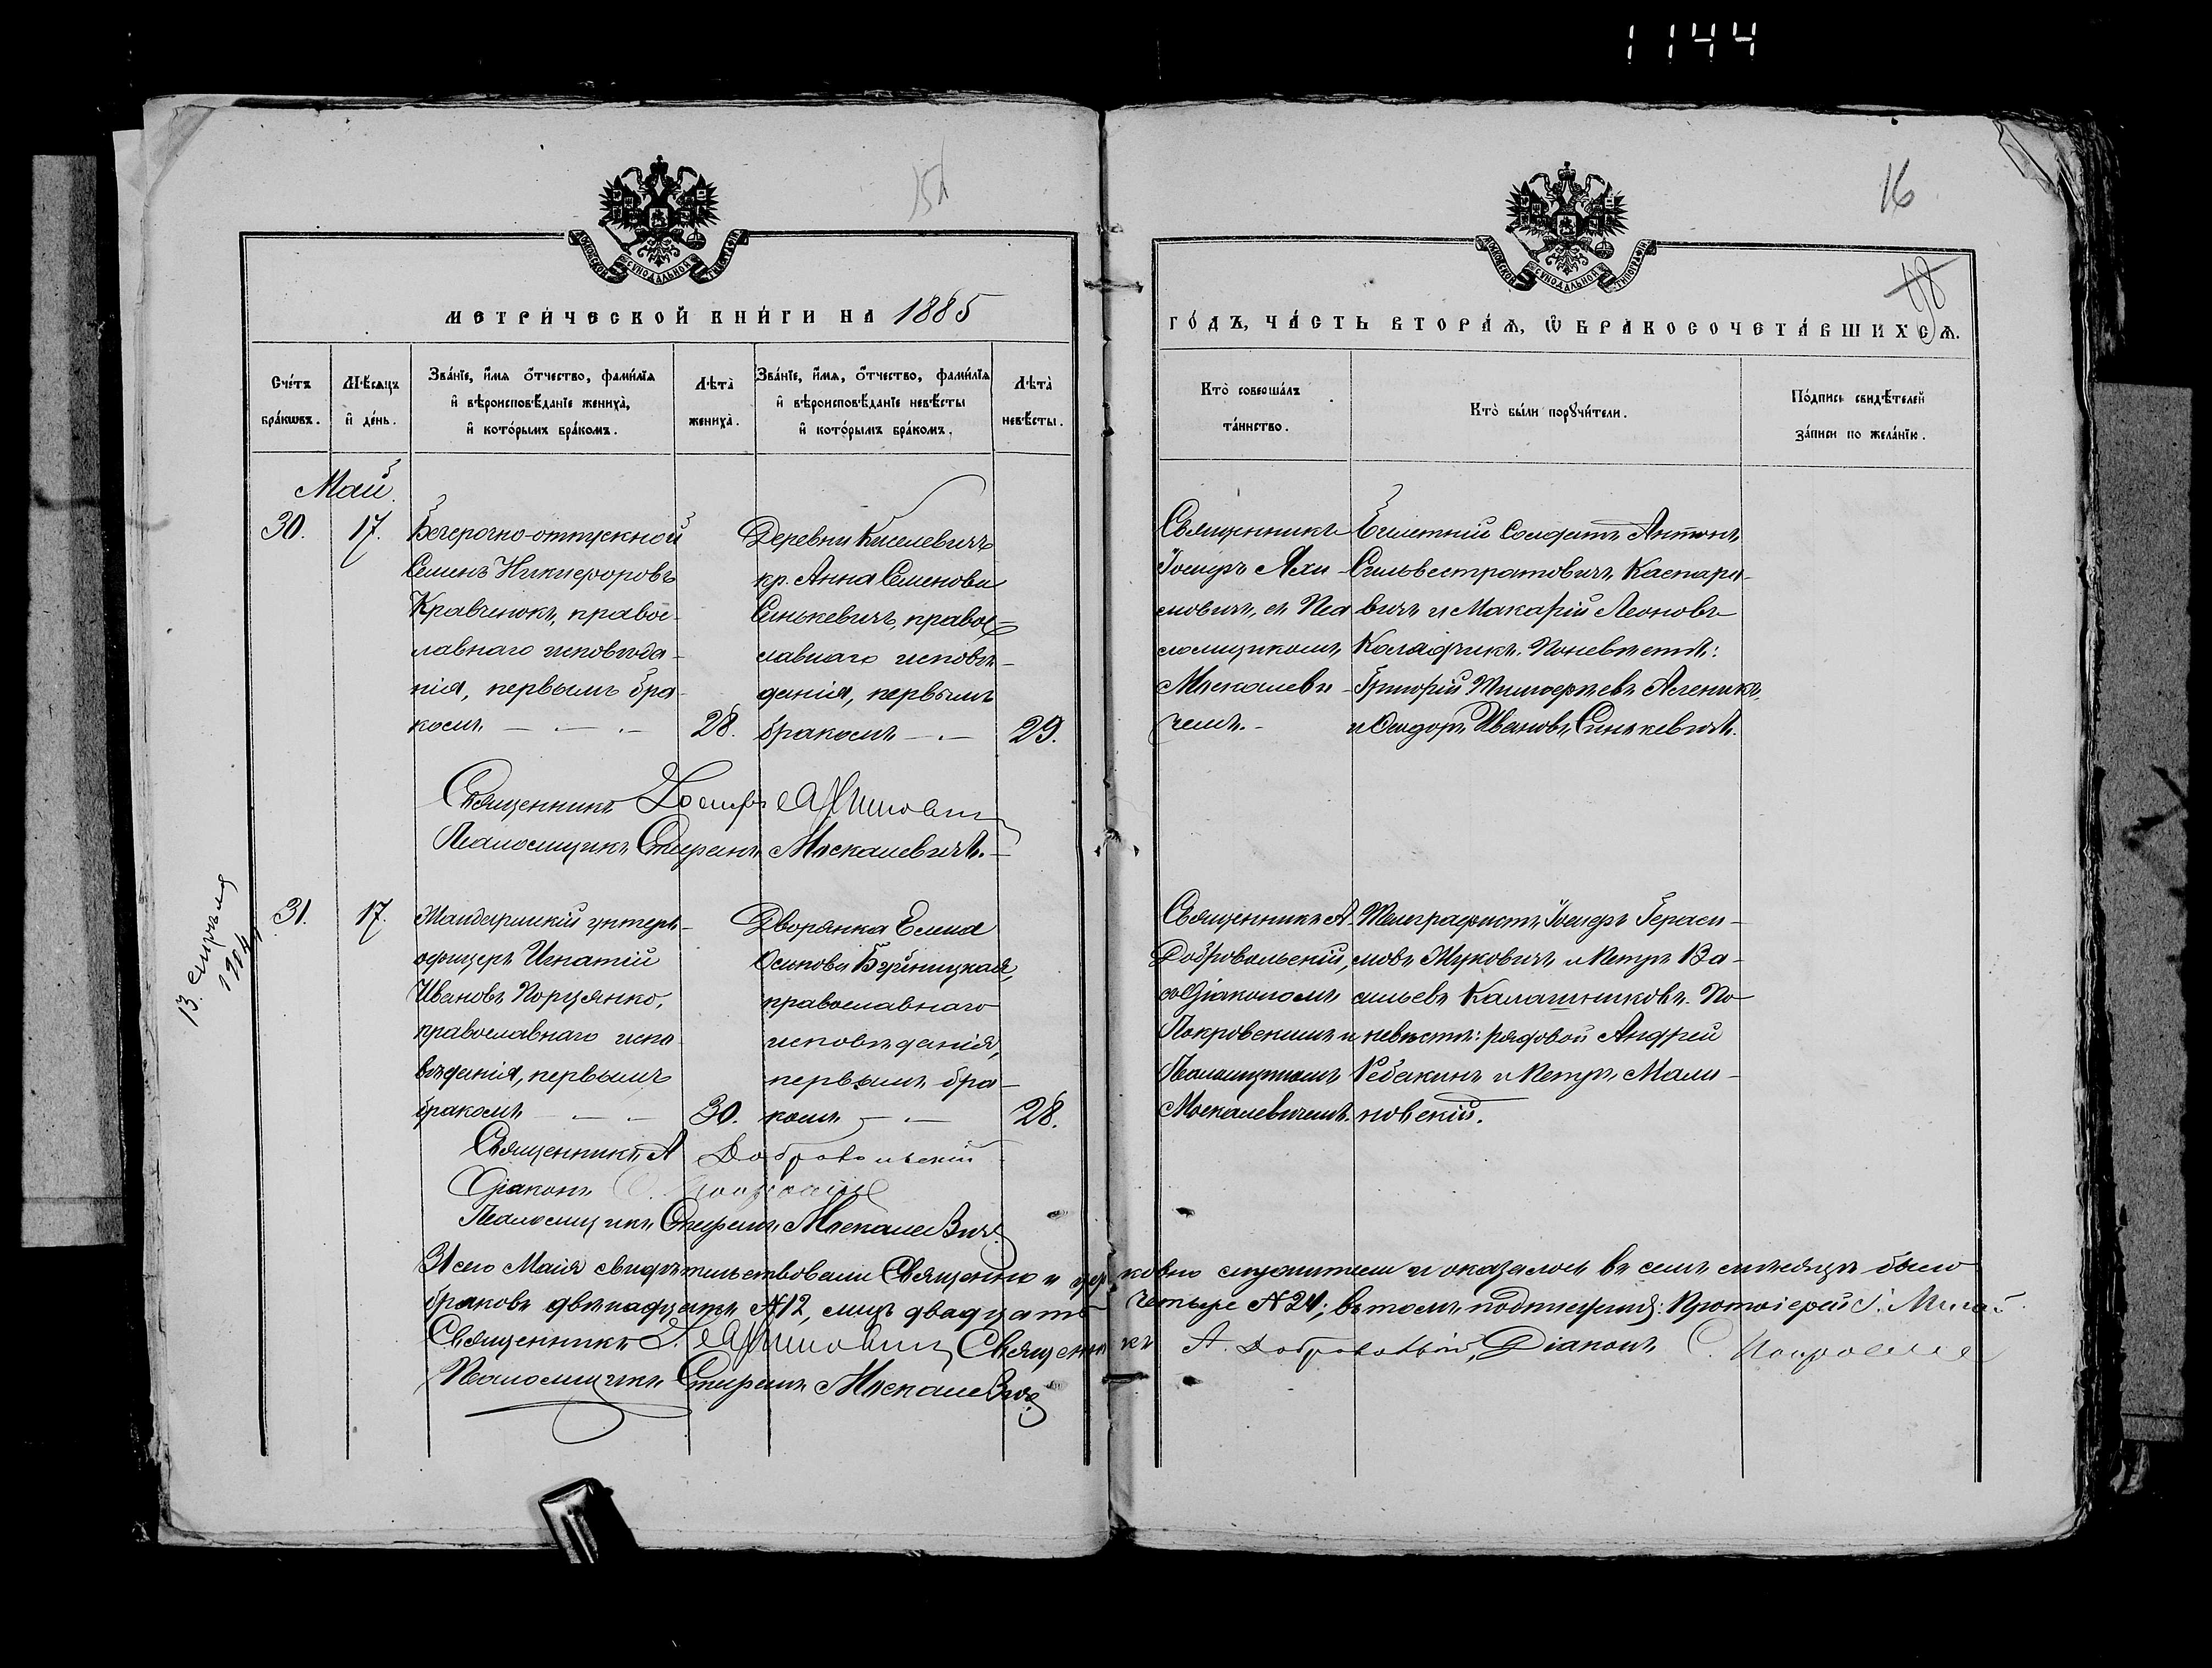 1144
16
МОСКОВСКОЙ СѴНОДАЛЬНОЙ ТИПОГРАФІИ
МОСКОВСКОЙ СѴНОДАЛЬНОЙ ТИПОГРАФІИ
МЕТРИ́ЧЕСКОЙ КНИ́ГИ НА 1885
ГО́ДЪ, ЧА́СТЬ ВТОРА́Ѧ, Ѡ҆ БРАКОСОЧЕТА́ВШИХСѦ.
Сче́тъ бра́кωвъ.
Мѣ́сяцъ и҆ де́нь.
Зва́нїе, и҆́мя ѻ҆́тчество, фами́лїя
и҆ вѣроисповѣ́данїе жениха̀,
и҆ кото́рымъ бра́комъ.
Лѣта̀ жениха̀.
Зва́нїе, и҆́мя, ѻ҆́тчество, фами́лїя
и҆ вѣроисповѣ́данїе невѣ́сты
и҆ кото́рымъ бра́комъ.
Лѣта̀ невѣ́сты.
Кто̀ соверша́лъ
та́инство.
Кто̀ бы́ли порꙋчи́тели.
По́дпись свидѣ́телей
за́писи по жела́нїю.
Май.
30.
17.
Безсрочно-отпускной
Семенъ Никифоровъ
Кравченокъ, правос-
лавнаго исповѣда-
нія, первымъ бра-
комъ
28.
Деревни Киселевичъ
кр. Анна Семенова
Синкевичъ, правос-
лавнаго исповѣ-
данія, первымъ
бракомъ
29.
Священникъ
Іосифъ Яхи-
мовичъ, съ Пса-
ломщикомъ
Мскалеви-
чемъ.
Билетній Солдатъ Антонъ
Сильвестратовичъ Каспаро-
вичъ и Макарій Леоновъ
Коладчикъ. По невѣстѣ:
Григорій Тимофѣевъ Асенокъ,
и Ѳеодоръ Ивановъ Синкевичъ.
Священникъ Іосифъ Яхимовичъ
Псаломщикъ Стефанъ Мскалевичъ.
13. Сентября
1904
31.
17.
Жандармскій унтеръ-
офицеръ Игнатій
Ивановъ Порцянко,
православнаго испо-
вѣданія, первымъ
бракомъ
30.
Дворянка Елена
Осипова
православнаго
исповѣданія,
первымъ бра-
комъ
28.
Священникъ А.
Добровольскій,
со Діакономъ
Покровскимъ и
Псаломщикомъ
Мскалевичемъ.
Телеграфистъ Іосифъ Гераси-
мовъ Жуковичъ и Петръ Ва-
сильевъ Калашниковъ. По
невѣстѣ: рядовой Андрей
Рѣбакинъ и Петръ Мали-
новскій.
Священникъ А Добровольскій
Діаконъ С. Покровскій
Псаломщикъ Стефанъ Мскалевичъ
31 сего Маія свидѣтельствовали Священно и церковно служители и оказалось въ семъ мѣсяцѣ было
браковъ двѣнадцать №12, лицъ двадцать четыре №24; въ томъ подписуемся: Протоіерей
Священникъ І. Яхимовичъ, Священникъ А. Добровольскій, Діаконъ С. Покровскій
Псаломщикъ Стефанъ Мскалевичъ